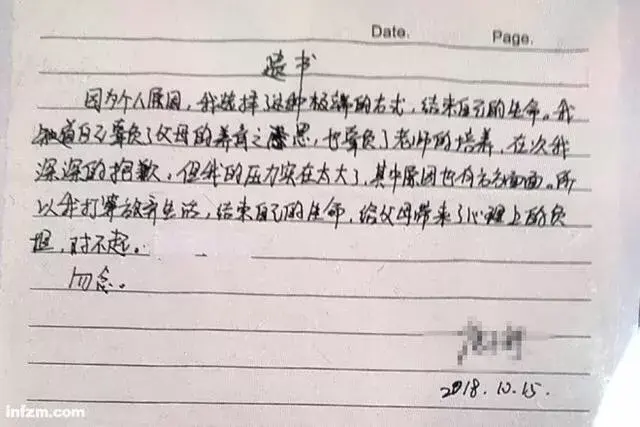 Date. Page.
遗书
因为个人原因,我选择了这种极端的方式,结束自己的生命。我
知道自己辜负了父母的养育之恩,也辜负了老师的培养,在次我
深深的抱歉,但我的压力实在太大了,其中原因也有方方面面。所
以我打算放弃生活,结束自己的生命,给父母带来了心理上的负
担,对不起。
勿念。
2018.10.15.
infzm.com